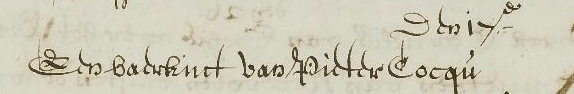 Den 17.do
Een vaerkint van Pieter Cocqu